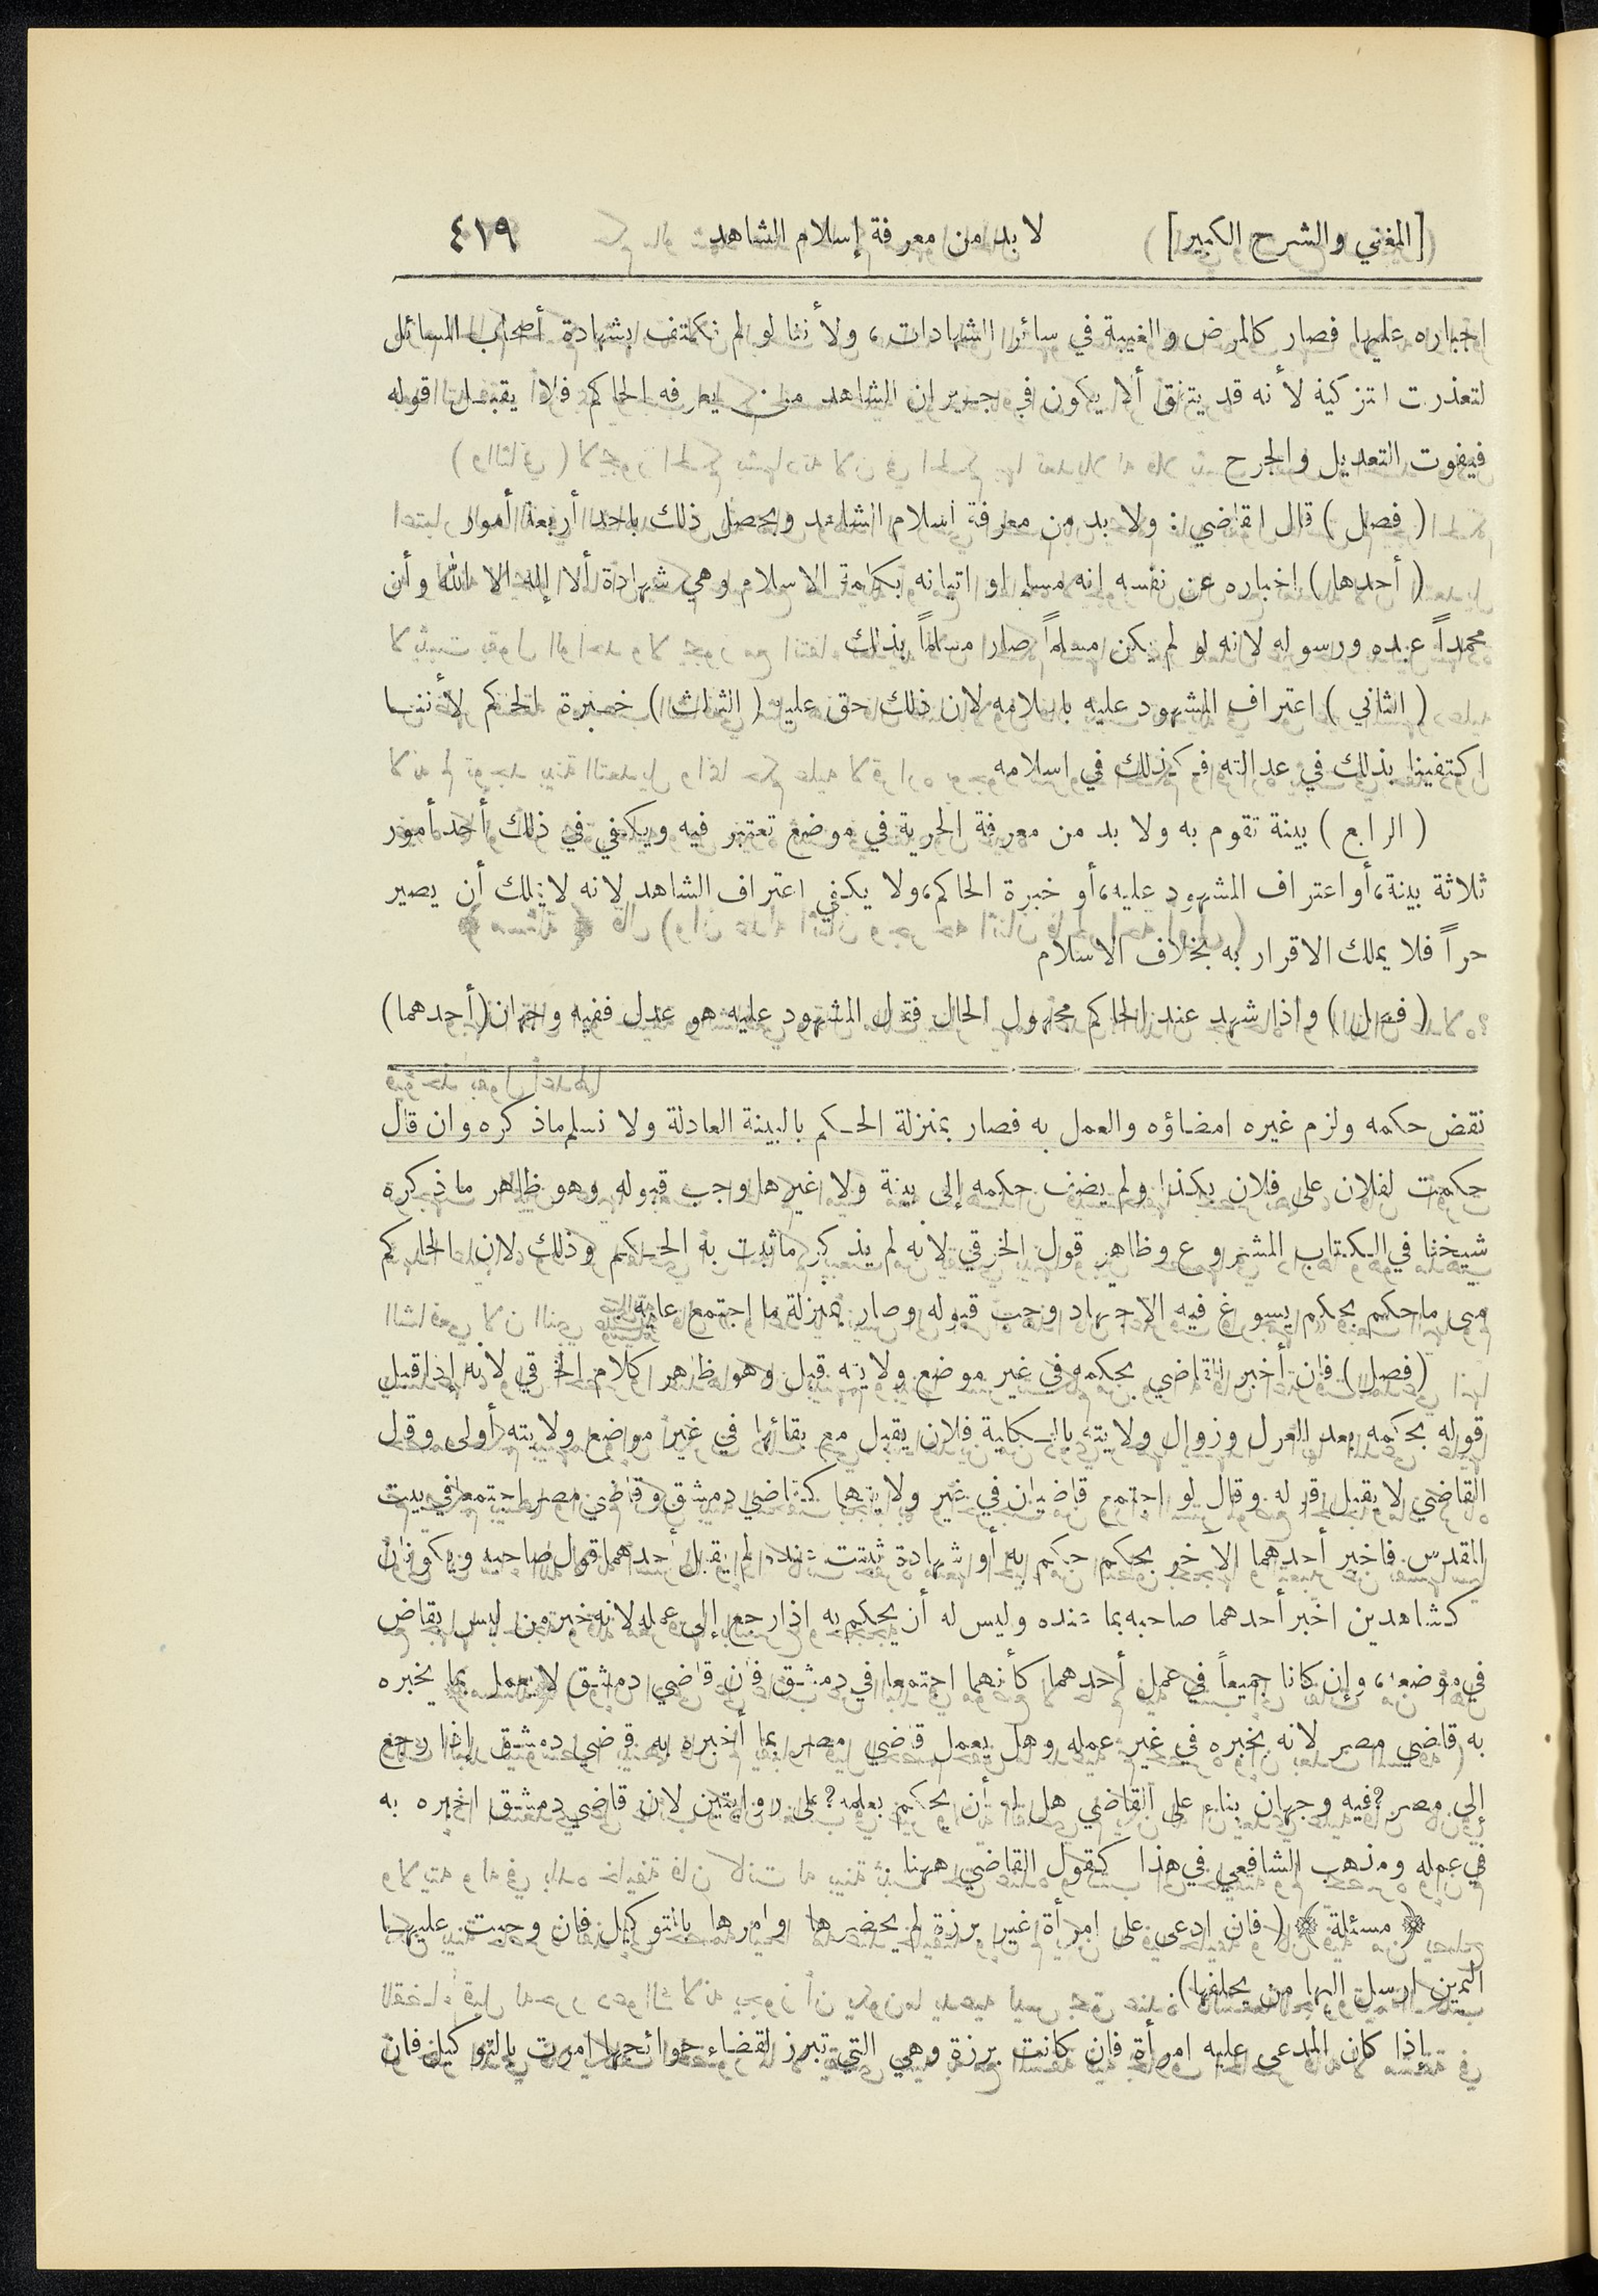 [المغني والشرح الكبير] لا بد من معرفة إسلام الشاهد ٤١٩
اجباره عليها فصار كالمرض والغيبة في سائر الشهادات، ولأننا لو لم نكتف بشهادة أصحاب المسائل
لتعذرت التزكية لأنه قد يتفق ألا يكون في جيران الشاهد من يعرفه الحاكم فلا يقبل قوله
فيفوت التعديل والجرح
( فصل ) قال القاضي: ولا بد من معرفة إسلام الشاهد ويحصل ذلك باحد أربعة أمور
( أحدها ) إخباره عن نفسه انه مسلم او اتيانه بكلمة الاسلام وهي شهادة ألا إله الا الله وأن
محمداً عبده ورسوله لانه لو لم يكن مسلماً صار مسلماً بذلك
( الثاني ) اعتراف المشهود عليه باسلامه لان ذلك حق عليه ( الثالث ) خبرة الحاكم لأننا
اكتفينا بذلك في عدالته فكذلك في اسلامه
( الرابع ) بينة تقوم به ولا بد من معرفة الحرية في موضع تعتبر فيه ويكفي في ذلك أحد أمور
ثلاثة بينة، أو اعتراف المشهود عليه، أو خبرة الحاكم، ولا يكفي اعتراف الشاهد لانه لا يملك أن يصير
حراً فلا يملك الاقرار به بخلاف الاسلام
( فصل ) واذا شهد عند الحاكم مجهول الحال فقال المشهود عليه هو عدل ففيه وجهان (أحدهما)
نقض حكمه ولزم غيره امضاؤه والعمل به فصار بمنزلة الحكم بالبينة العادلة ولا نسلم ماذكره وان قال
حكمت لفلان على فلان بكذا ولم يضف حكمه إلى بينة ولا غيرها وجب قبوله وهو ظاهر ما ذكره
شيخنا في الكتاب المشروع وظاهر قول الخرقي لانه لم يذكر ماثبت به الحكم وذلك لان الحاكم
متى ماحكم بحكم يسوغ فيه الاجتهاد وجب قبوله وصار بمنزلة ما اجتمع عليه
(فصل) فان أخبر القاضي بحكمه في غير موضع ولايته قبل وهو ظاهر كلام الخرقي لأنه إذا قبل
قوله بحكمه بعد العزل وزوال ولايته بالكلية فلان يقبل مع بقائها في غير مواضع ولايته أولى وقال
القاضي لا يقبل قوله وقال لو اجتمع قاضيان في غير ولايتهما كقاضي دمشق وقاضي مصر اجتمعا في بيت
المقدس فاخبر أحدهما الآخر بحكم حكم به أو شهادة ثبتت عنده لم يقبل أحدهما قول صاحبه ويكونان
كشاهدين اخبر أحدهما صاحبه بما عنده وليس له أن يحكم به اذا رجع إلى عمله لانه خبر من ليس بقاض
في موضعه، وإن كانا جميعاً في عمل أحدهما كأنهما اجتمعا في دمشق فان قاضي دمشق لا يعمل بما يخبره
به قاضي مصر لانه يخبره في غير عمله وهل يعمل قاضي مصر بما أخبره به قاضي دمشق إذا رجع
إلى مصر؟ فيه وجهان بناء على القاضي هل له أن يحكم بعلمه؟ على روايتين لان قاضي دمشق اخبره به
في عمله ومذهب الشافعي في هذا كقول القاضي ههنا
﴿ مسئلة ﴾ ( فان ادعى على امرأة غير برزة لم يحضرها وامرها بالتوكيل فان وجبت عليها
اليمين ارسل اليها من يحلفها)
إذا كان المدعى عليه امرأة فان كانت برزة وهي التي تبرز لقضاء حوائجها امرت بالتوكيل فان